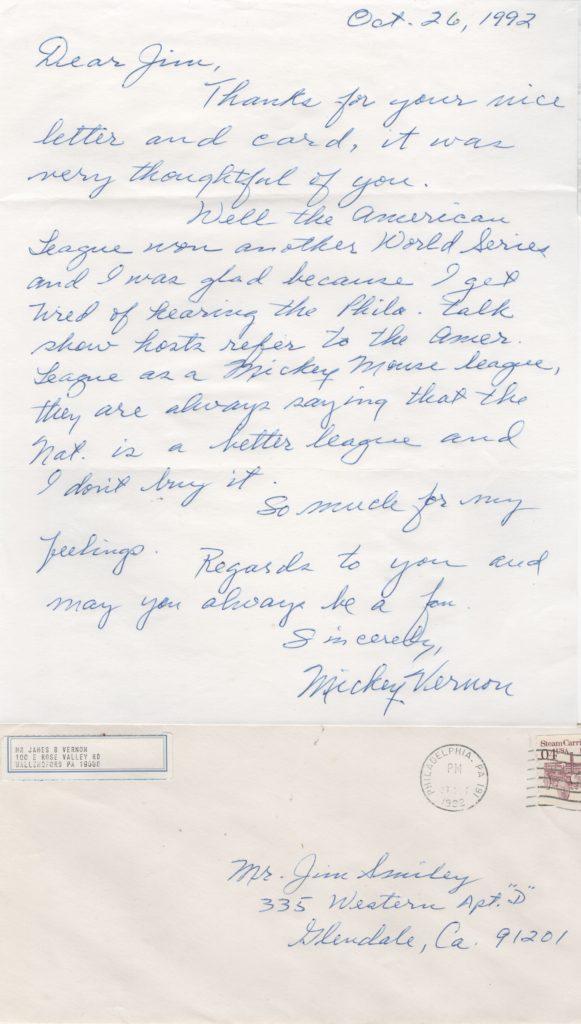 Oct. 26, 1992
Dear Jim,
Thanks for your nice
letter and card, it was
very thoughtful of you.
Well the American
League won another World Series
and I was glad because I get
tired of hearing the Phila. talk
show hosts refer to the Amer.
League as a Mickey Mouse league,
they are always saying that the
Nat. is a better league and
I don't buy it.
So much for my
feelings.
Regards to you and
may you always be a fan.
Sincerely,
Mickey Vernon
MR JAMES B VERNON
100 E ROSE VALLEY RD
WALLINGFORD PA 19086
PHILADELPHIA, PA 191
PM
1992
Steam Carri
04 USA
Mr. Jim Smiley
335 Western Apt. "D"
Glendale, Ca. 91201